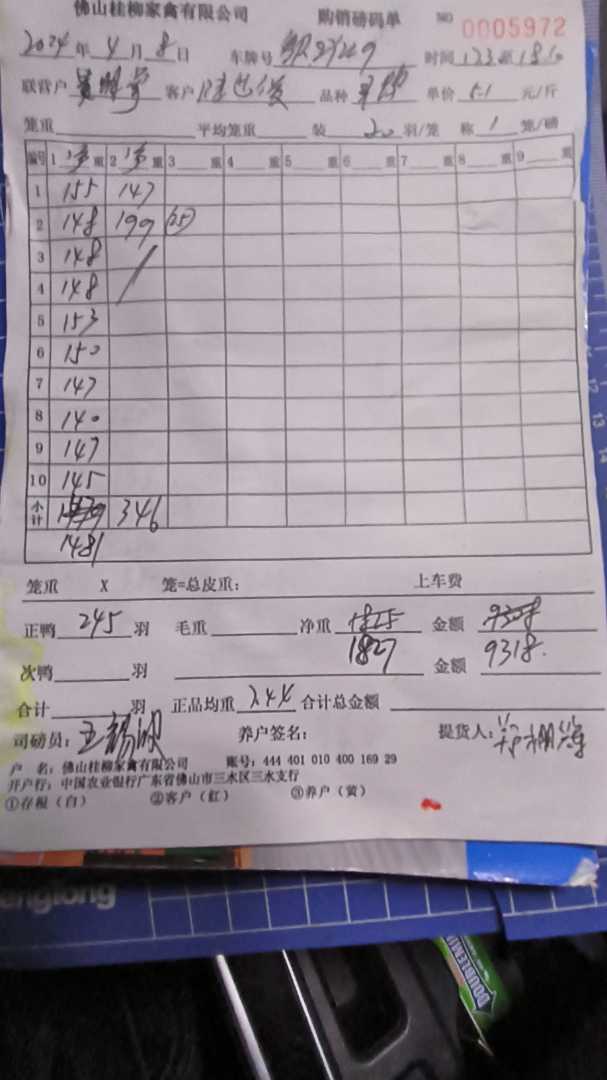 佛山桂柳家禽有限公司 购销磅码单 NO 0005972
2024年4月8日 车牌号 时间
联营户 客户 品种 单价 5.1 元/斤
笼重 平均笼重 装 20 羽/笼 称 1 笼/磅
编号 1 重 2 重 3 重 4 重 5 重 6 重 7 重 8 重 9 重
1 155 147
2 148 199 (25)
3 148
4 148
5 153
6 150
7 147
8 140
9 147
10 145
小计 346
1481
笼重 X 笼=总皮重: 上车费
正鸭 245 羽 毛重 净重 1825 金额
1827 9318.
次鸭 羽 金额
合计 羽 正品均重 合计总金额
司磅员: 养户签名: 提货人:
户 名: 佛山桂柳家禽有限公司 账号: 444 401 010 400 169 29
开户行: 中国农业银行广东省佛山市三水区三水支行
①存根(白) ②客户(红) ③养户(黄)
englong
DOUBLEMINT